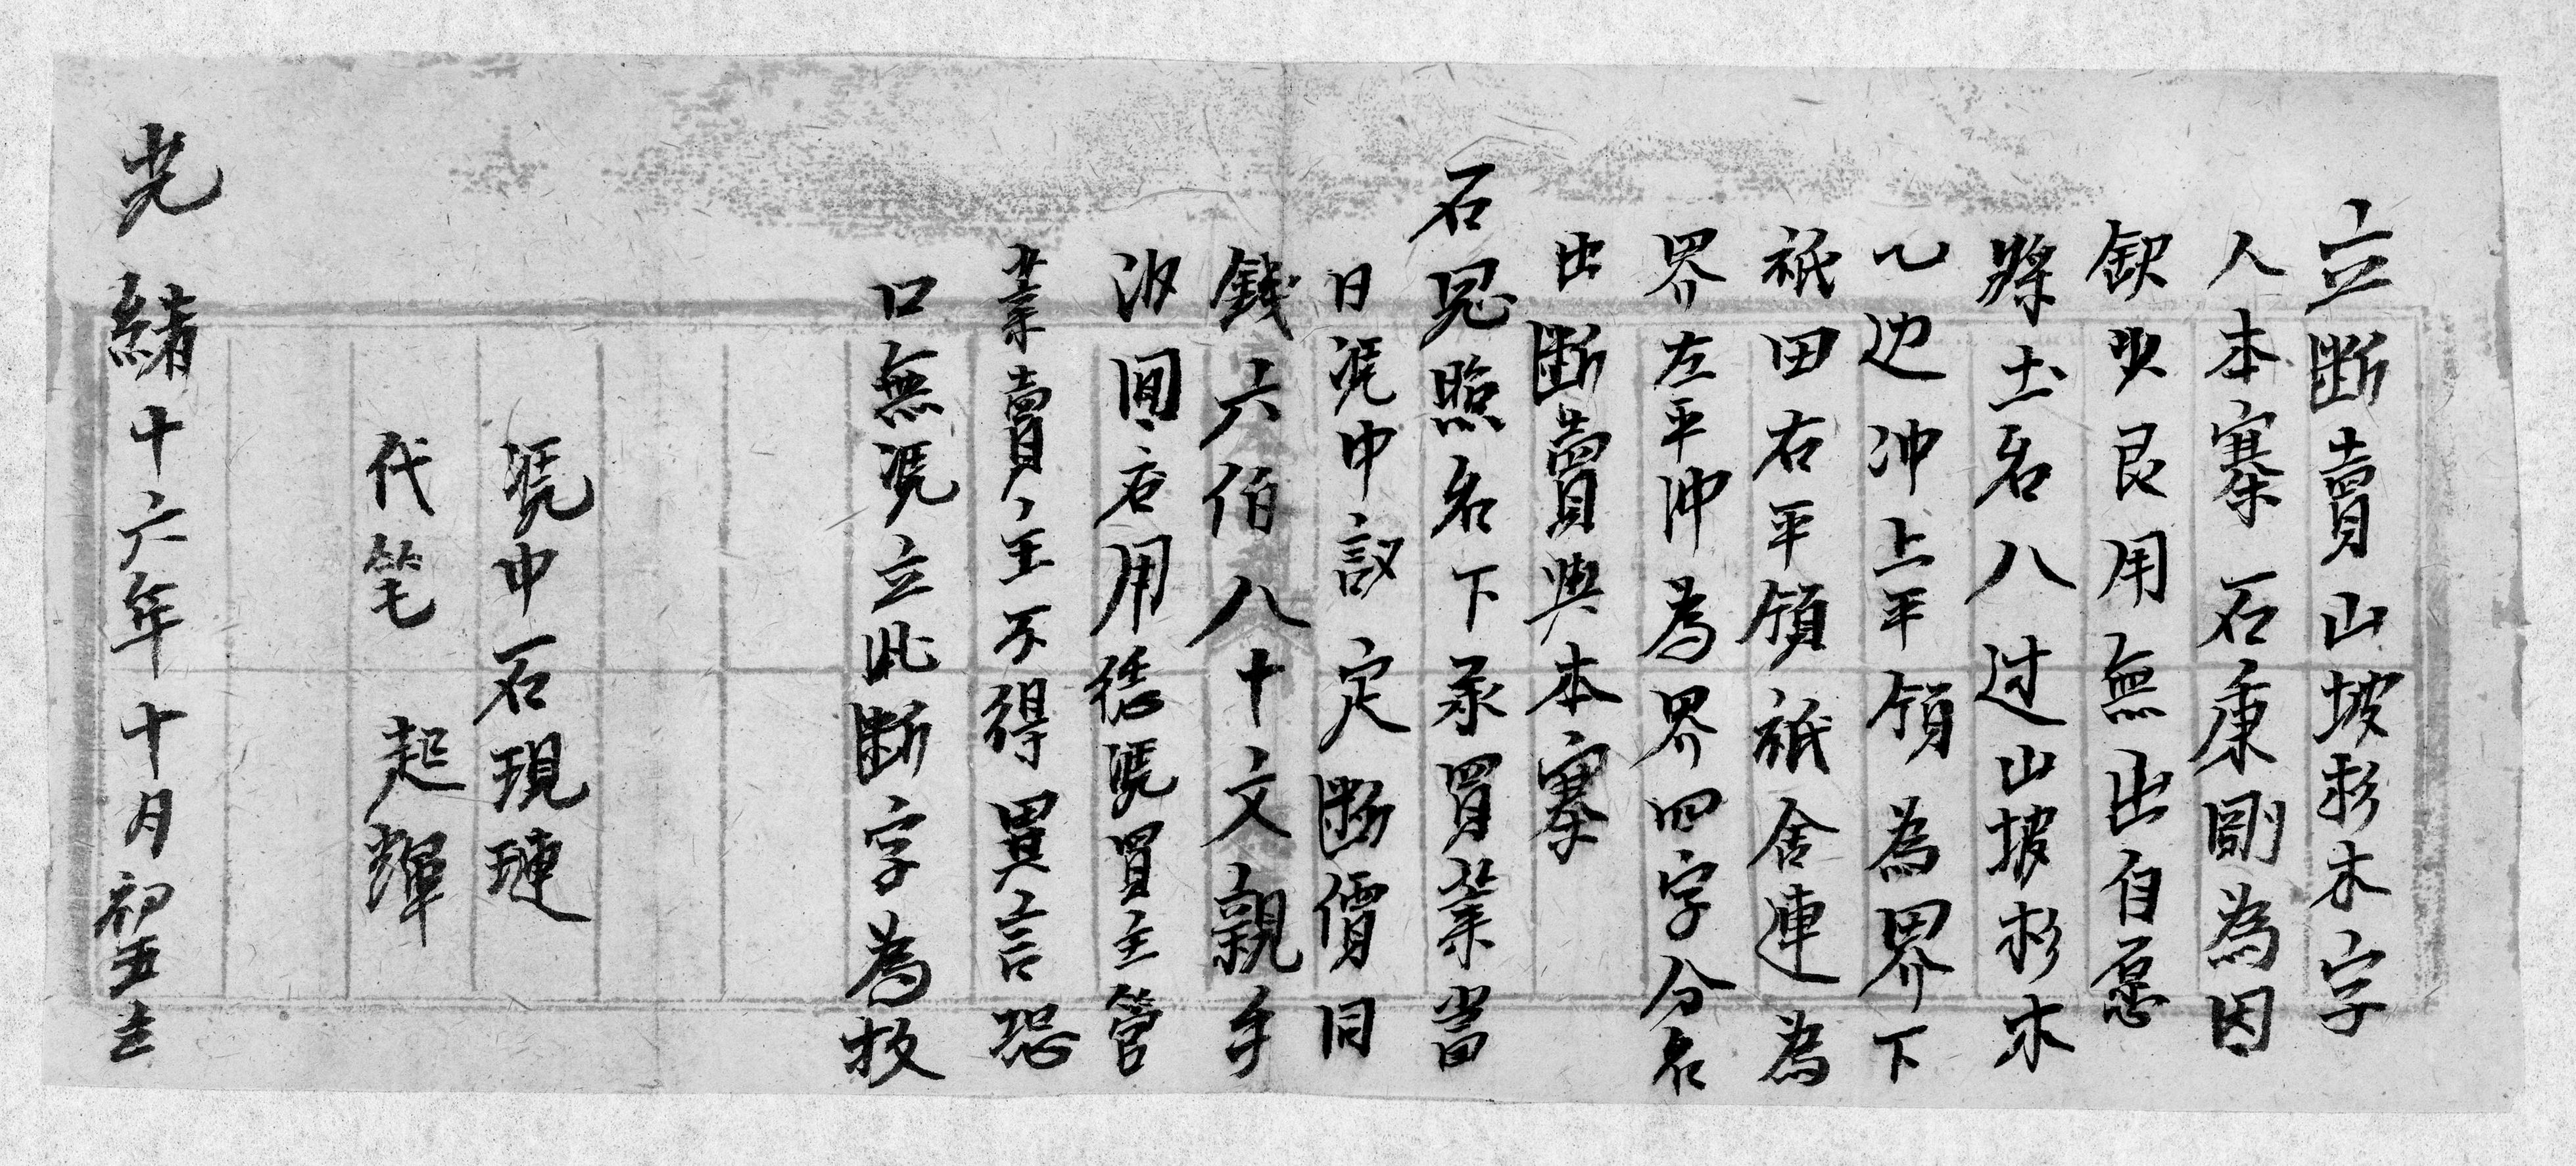 立断賣山坡杉木字
人本寨石秉剛為因
缺少艮用無出自愿
將土名八过山坡杉木
乙边冲上平領為界下
祗田右平領祗舍連為
界左平冲為界四字分名
出断賣與本寨
石冕照名下承買業當
日凴中議定断價同
錢六伯八十文親手
収回应用恁凴買主管
業賣主不得異言恐
口無凴立此断字為㨿
凴中石現璉
代笔 起輝
光緒十六年十月初五立